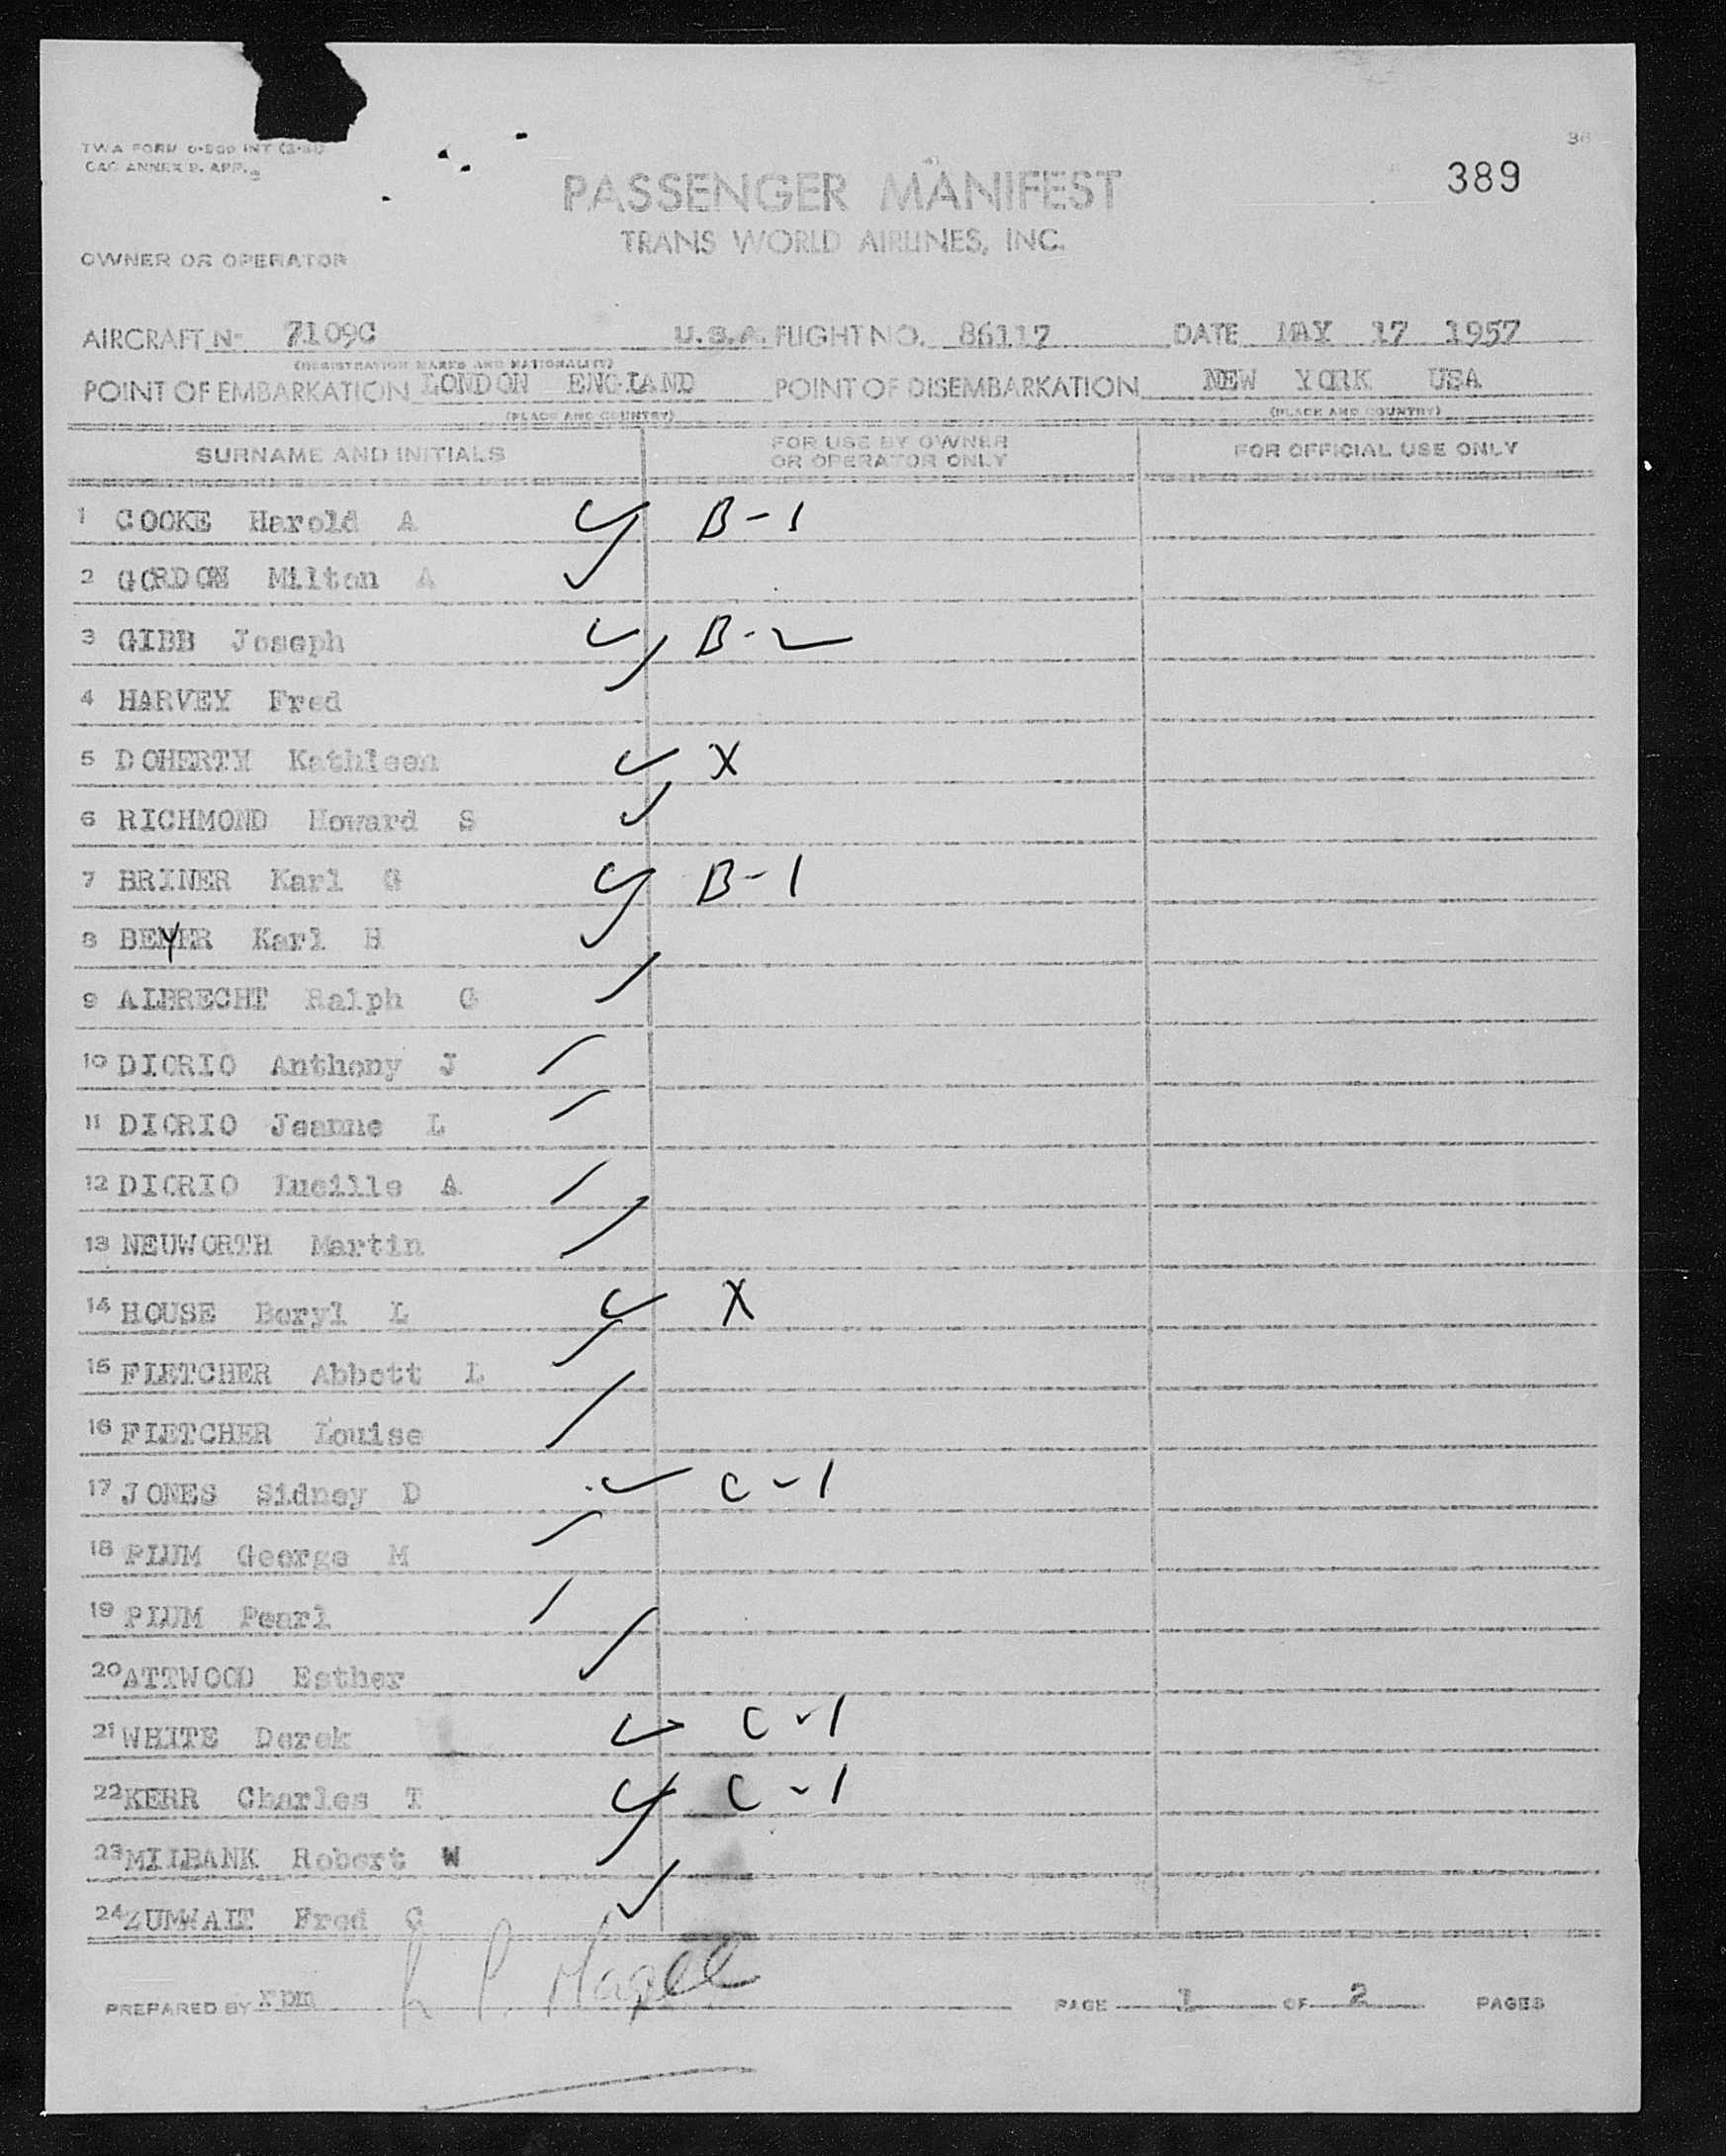 TWA FORM
CAO ANNEX 9. APP.
36
389
PASSENGER MANIFEST
TRANS WORLD AIRLINES, INC.
OWNER OR OPERATOR
AIRCRAFT N- 7109C U.S.A. FLIGHT NO. 86117 DATE MAY 17 1957
(REGISTRATION MARKS AND NATIONALITY)
POINT OF EMBARKATION LONDON ENGLAND POINT OF DISEMBARKATION NEW YORK USA
(PLACE AND COUNTRY) (PLACE AND COUNTRY)
SURNAME AND INITIALS FOR USE BY OWNER OR OPERATOR ONLY FOR OFFICIAL USE ONLY
1 COOKE Harold A B-1
2 GORDON Milton A
3 GIBB Joseph B-2
4 HARVEY Fred
5 DOHERTY Kathleen X
6 RICHMOND Howard S
7 BRINER Karl G B-1
8 BEYER Karl H
9 ALBRECHT Ralph G
10 DIORIO Anthony J
11 DIORIO Jeanne L
12 DIORIO Lucille A
13 NEUWORTH Martin
14 HOUSE Beryl L X
15 FLETCHER Abbott L
16 FLETCHER Louise
17 JONES Sidney D C-1
18 PLUM George M
19 PLUM Pearl
20 ATTWOOD Esther
21 WHITE Derek C-1
22 KERR Charles T C-1
23 MILBANK Robert W
24 ZUMWALT Fred C
PREPARED BY rbm PAGE 1 OF 2 PAGES